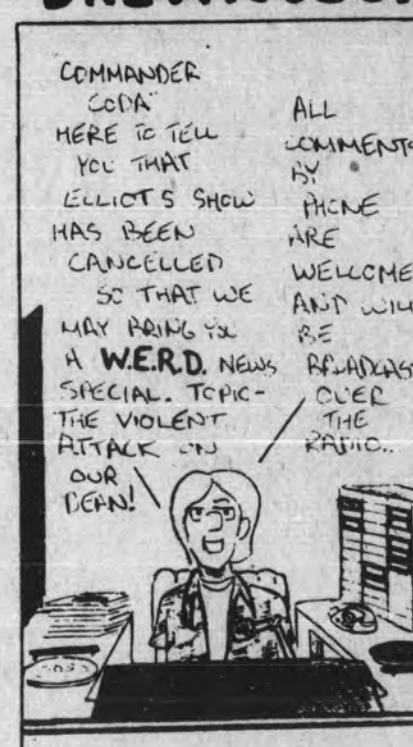 COMMANDER
"CODA"
HERE TO TELL
YOU THAT
ELLIOT'S SHOW
HAS BEEN
CANCELLED
SO THAT WE
MAY BRING YOU
A W.E.R.D. NEWS
SPECIAL. TOPIC-
THE VIOLENT
ATTACK ON
OUR
DEAN!
ALL
COMMENTS
BY
PHONE
ARE
WELCOME
AND WILL
BE
BROADCAST
OVER
THE
RADIO..